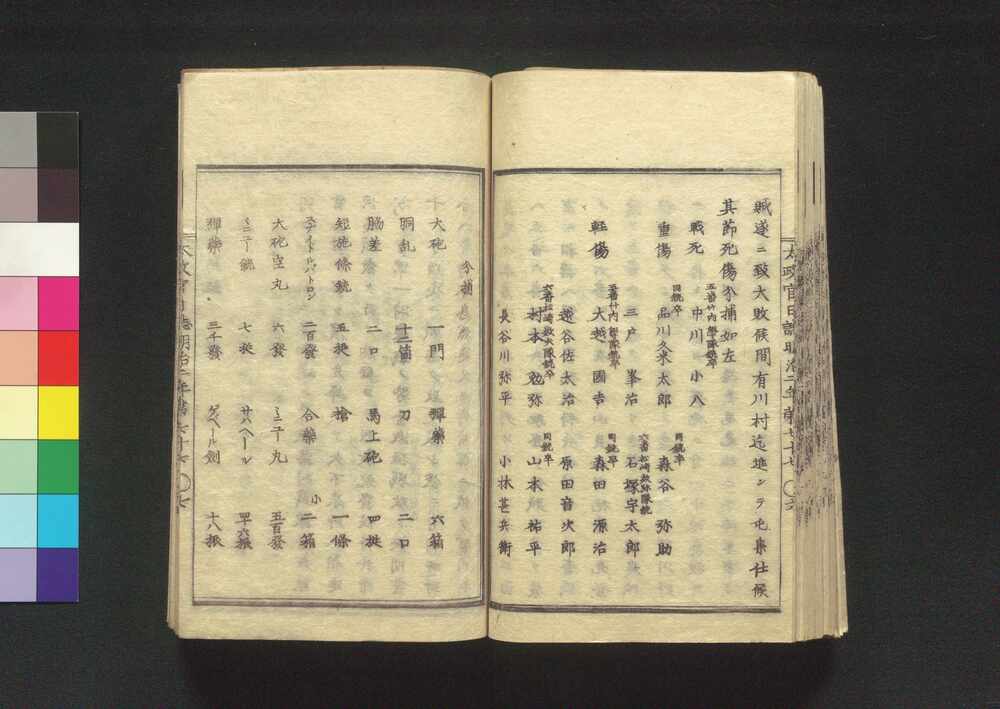 賊遂ニ致大敗候間有川村迄進シテ屯集仕候
其節死傷分捕如左
戦死
五番竹内整隊銃卒
中川小八
重傷
同銃卒
品川久米太郎
同銃卒
森谷弥助
三戸峯治
六番松崎救大隊銃
石塚宇太郎
軽傷
五番竹内整隊銃卒
大越國吉
同銃卒
森田源治
越谷佐太治
原田音次郎
六番松崎救大隊銃卒
村本勉弥
同銃卒
山本祐平
長谷川弥平
小林甚兵衛
太政官日誌明治二年第七十七
六
分捕
大砲 一門
弾薬 六箱
胴乱 十二箇
刀 二口
脇差 二口
馬上砲 四挺
短施條銃 五挺
槍 一條
二百發
合薬 小二箱
大砲空丸 六發
ミニー丸 五百發
ミニー銃 七挺
サハヘール 四十六振
弾薬 三千發
ゲベール劍 十八振
太政官日誌明治二年第七十七
七